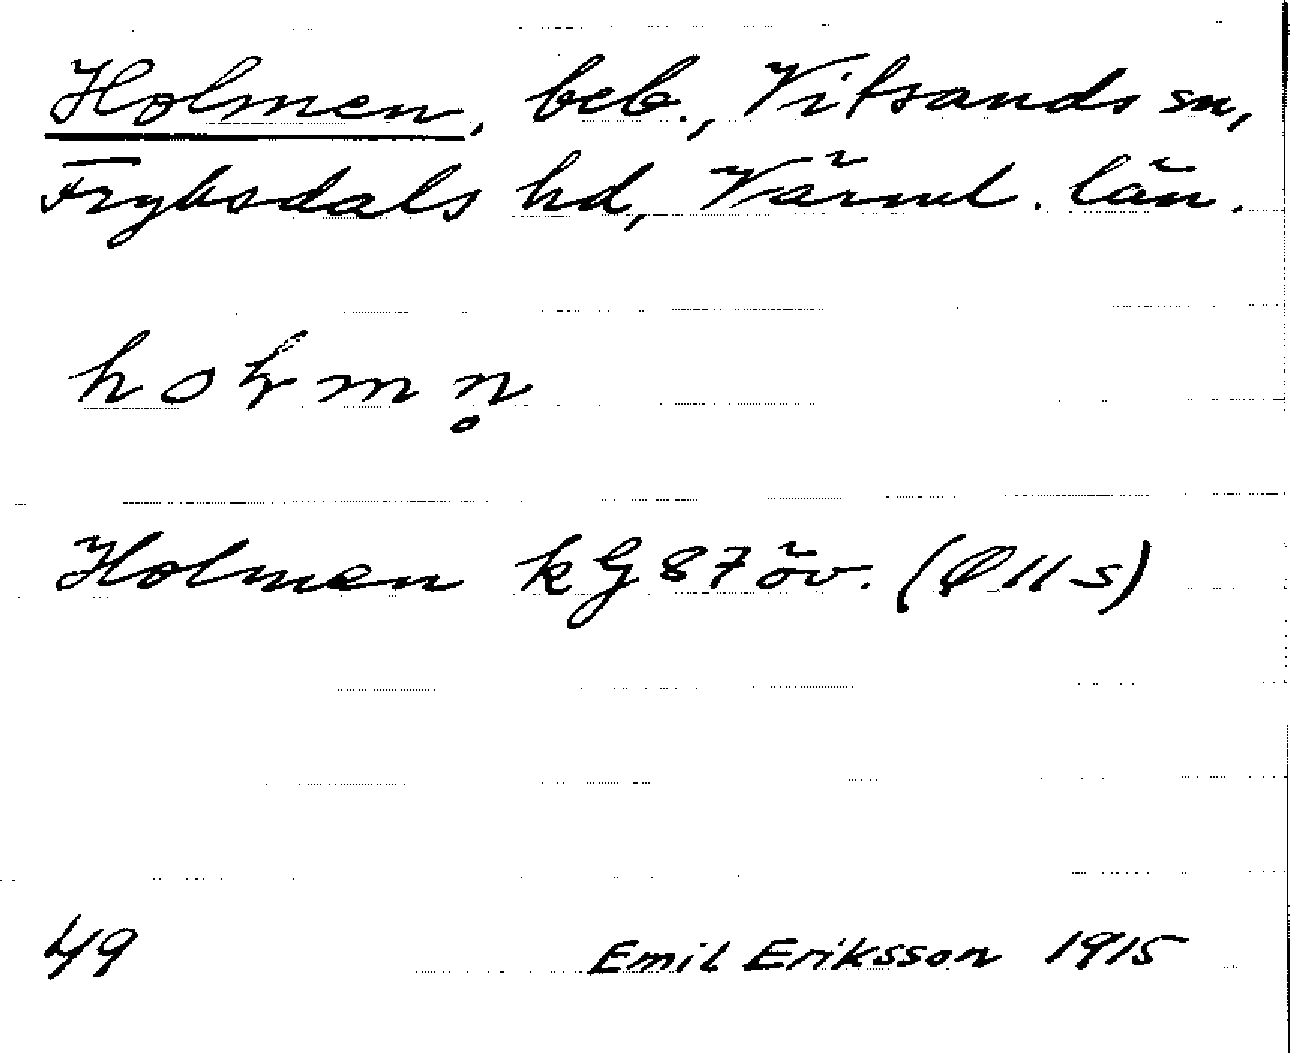 Holmen, beb., Vitsands sn,
Fryksdals hd, Värml. län.
hoɫmn̥
Holmen kG 87 öv. (Ø 11 s)
49 Emil Eriksson 1915